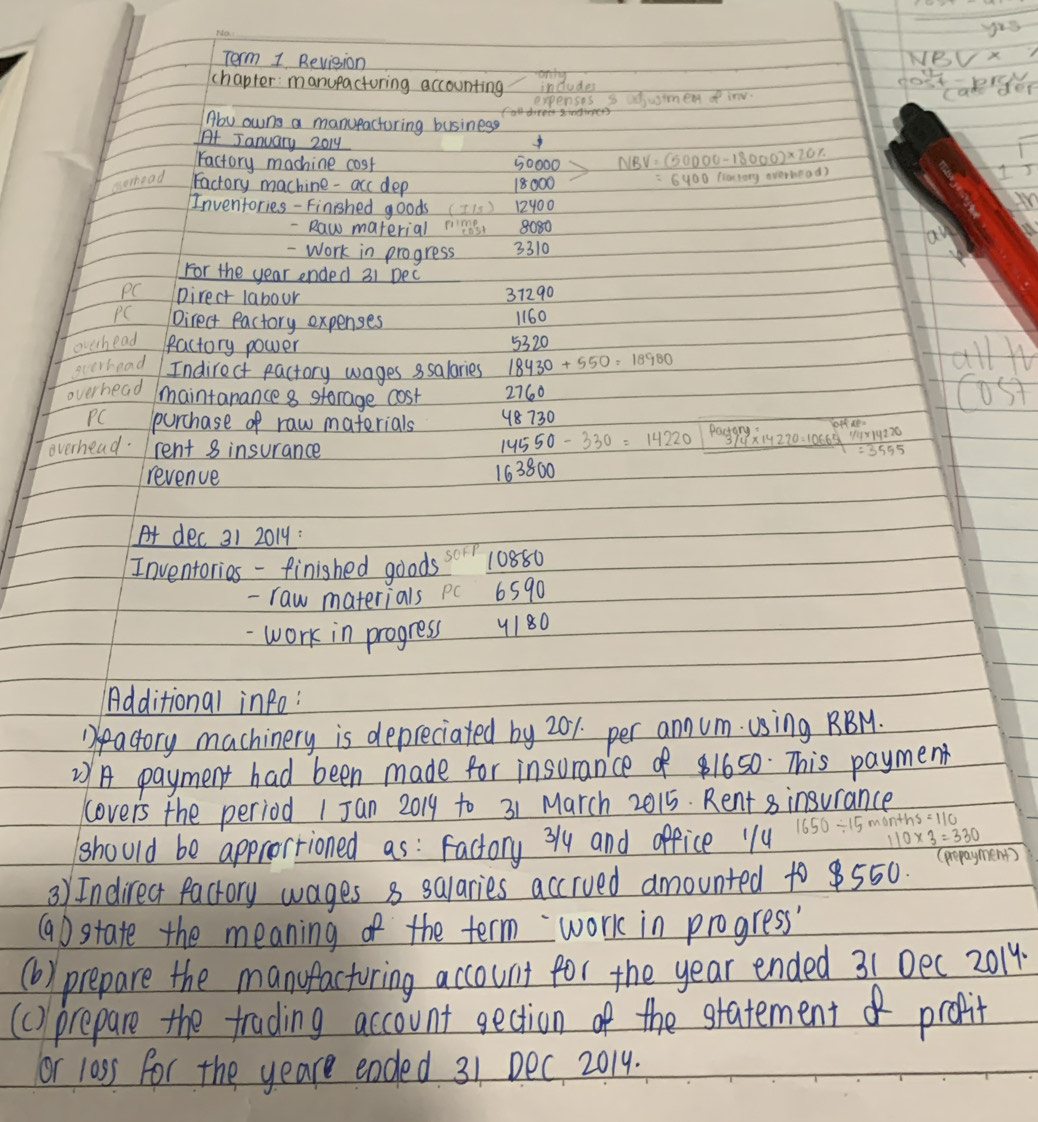 No.
Term 1 Revision
chapter: manufacturing accounting only includes expenses & adjustment of inv.
(all direct & indirect)
Abu owns a manufacturing business
At January 2014 $
Factory machine cost 50000 NBV = (50000-18000) × 20%
overhead Factory machine - acc dep 18000 = 6400 (factory overhead)
Inventories - Finished goods (I/S) 12400
- Raw material prime cost 8080
- Work in progress 3310
For the year ended 31 Dec
PC Direct labour 37290
PC Direct factory expenses 1160
overhead factory power 5320
overhead Indirect factory wages & salaries 18430 + 550 = 18980
overhead maintanance & storage cost 2760
PC purchase of raw materials 48730
overhead. rent & insurance 14550 - 330 = 14220 factory: 3/4 × 14220 = 10665 office: 1/4 × 14220 = 3555
revenue 163800
At dec 31 2014:
Inventories - finished goods SOFP 10880
- raw materials PC 6590
- work in progress 4180
Additional info:
1) factory machinery is depreciated by 20% per annum using RBM.
2) A payment had been made for insurance of $1650. This payment
covers the period 1 Jan 2014 to 31 March 2015. Rent & insurance
should be apprortioned as: Factory 3/4 and office 1/4 1650 ÷ 15 months = 110
110 × 3 = 330
(prepayment)
3) Indirect factory wages & salaries accrued amounted to $550.
(a) state the meaning of the term 'work in progress'
(b) prepare the manufacturing account for the year ended 31 Dec 2014.
(c) prepare the trading account section of the statement of profit
or loss for the yeare ended 31 Dec 2014.
yes
NBV ×
cost
all
cost